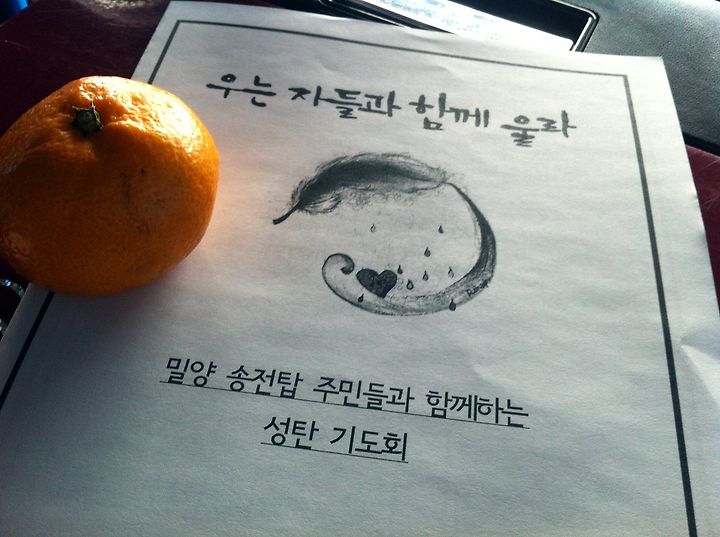 우는 자들과 함께 울라
밀양 송전탑 주민들과 함께하는
성탄 기도회